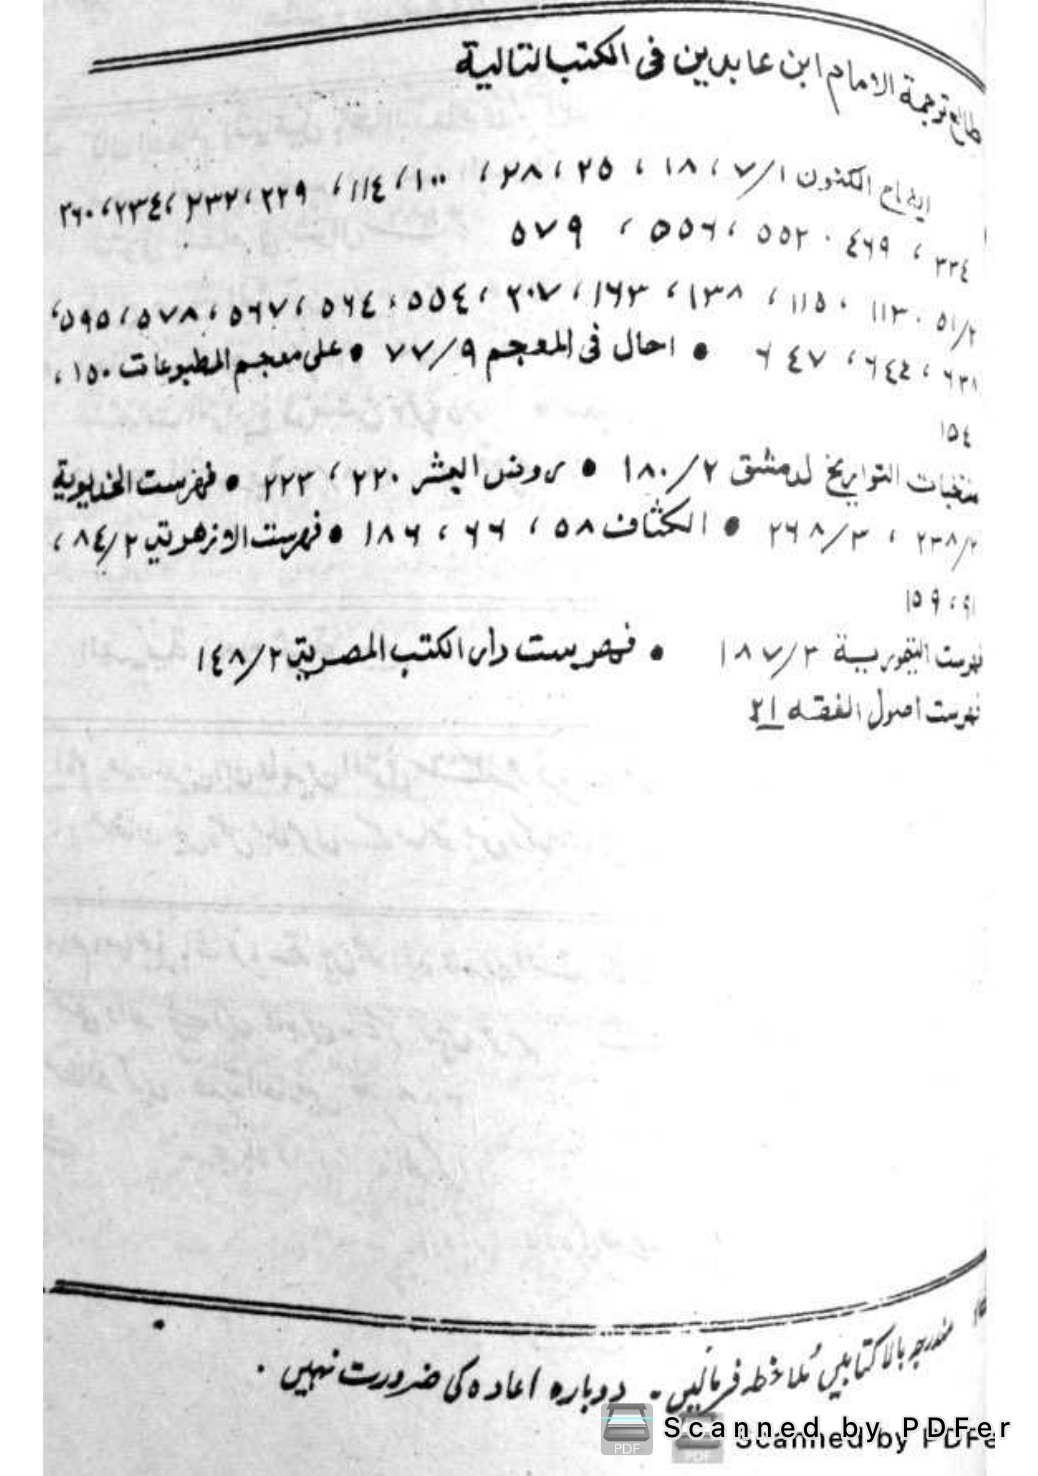 طالع ترجمة الامام ابن عابدين فى الكتب التالية
ايضاح المكنون ٧/١، ١٨، ٢٥، ٢٨، ١٠٠، ١١٤، ٢٢٩، ٢٣٢، ٢٣٤، ٢٦٠،
٣٣٤، ٤٦٩، ٥٥٢، ٥٥٦، ٥٧٩
٥١/٢، ١١٣، ١١٥، ١٣٨، ١٦٣، ٢٠٧، ٥٥٤، ٥٦٤، ٥٦٧، ٥٧٨، ٥٩٥،
٦٣٨، ٦٤٤، ٦٤٧ • احال فى المعجم ٧٧/٩ • على معجم المطبوعات ١٥٠،
١٥٤
منتخبات التواريخ لدمشق ١٨٠/٢ • روض البشر ٢٢٠، ٢٢٣ • فهرست الخديوية
٢٣٨/٢، ٢٦٨/٣ • الكشاف ٥٨، ٦٦، ١٨٦ • فهرست الازهرية ٨٤/٢،
٩١، ١٥٩
فهرست التيمورية ١٨٧/٣ • فهرست دار الكتب المصرية ١٤٨/٢
فهرست اصول الفقه ٢١
مندرجہ بالا کتابیں ملاخطہ فرمائیں۔ دوبارہ اعادہ کی ضرورت نہیں۔
Scanned by PDFer
Scanned by PDFe